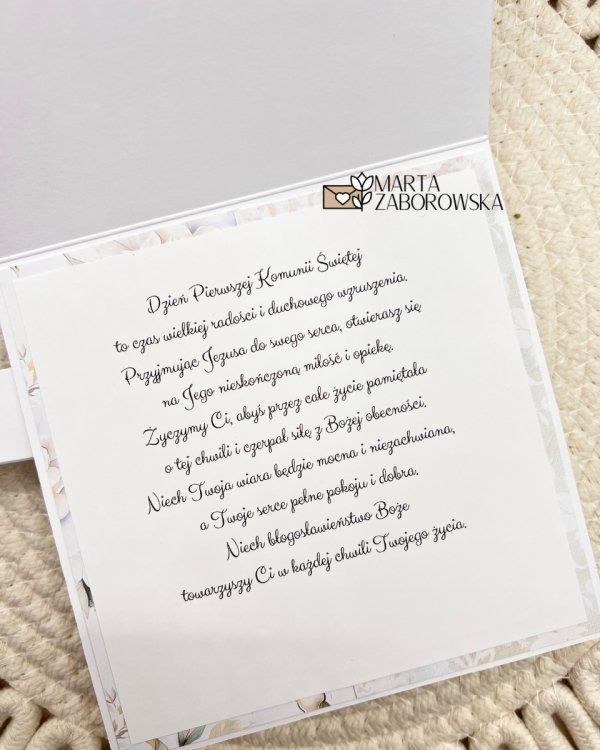 MARTA
ZABOROWSKA
Dzień Pierwszej Komunii Świętej
to czas wielkiej radości i duchowego wzruszenia.
Przyjmując Jezusa do swego serca, otwierasz się
na Jego nieskończoną miłość i opiekę.
Życzymy Ci, abyś przez całe życie pamiętała
o tej chwili i czerpał siłę z Bożej obecności.
Niech Twoja wiara będzie mocna i niezachwiana,
a Twoje serce pełne pokoju i dobra.
Niech błogosławieństwo Boże
towarzyszy Ci w każdej chwili Twojego życia.